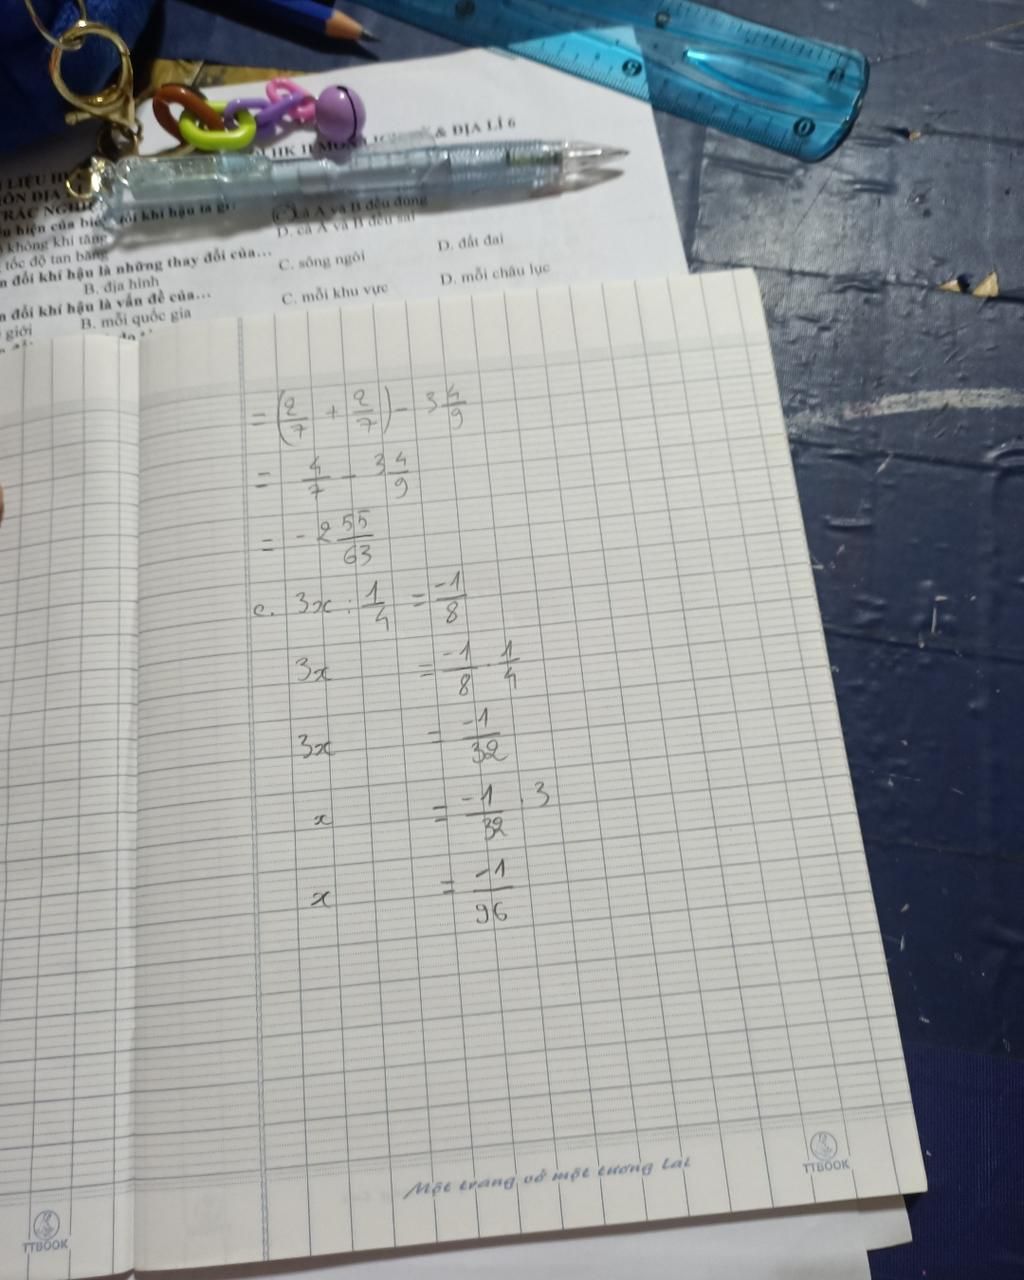 HK II MÔN & ĐỊA LÍ 6
LIỆU
MÔN ĐỊA
TRẮC NGHI
hiện của biế đổi khí hậu là gì?
C. cả A và B đều đúng
không khí tăng
D. cả A và B đều sai
tốc độ tan băng
đổi khí hậu là những thay đổi của...
B. địa hình
C. sông ngòi
D. đất đai
đổi khí hậu là vấn đề của...
giới
B. mỗi quốc gia
C. mỗi khu vực
D. mỗi châu lục
= (2/7 + 2/7) - 3 4/9
= 4/7 - 3 4/9
= - 2 55/63
c. 3x : 1/4 = -1/8
3x = -1/8 . 1/4
3x = -1/32
x = -1/32 . 3
x = -1/96
Một trang vở một tương lai
TTBOOK
TTBOOK